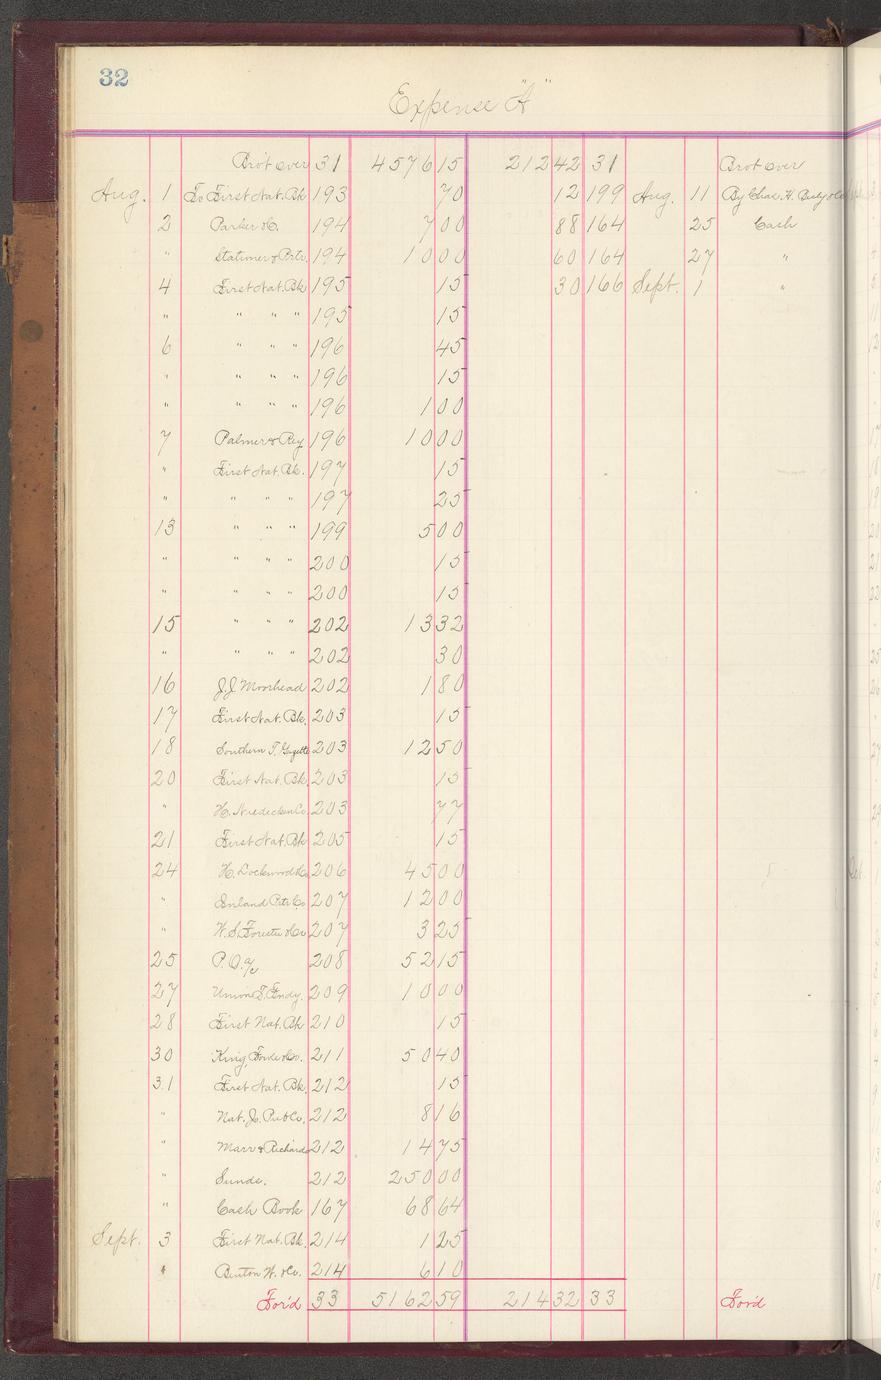 32
Expense "A"
Bro't over 31 4576 15 212 42 31 Bro't over
Aug. 1 To First Nat. Bk 193 70 12 199 Aug. 11 By Chas. H.
2 Parker &Co. 194 7 00 88 164 25 Cash
" Stationer & Prtr. 194 10 00 60 164 27 "
4 First Nat. Bk 195 15 30 166 Sept. 1 "
" " " " 195 15
6 " " " 196 45
" " " " 196 15
" " " " 196 1 00
7 Palmer & Rey 196 10 00
" First Nat. Bk. 197 15
" " " " 197 25
13 " " " 199 5 00
" " " " 200 15
" " " " 200 15
15 " " " 202 13 32
" " " " 202 30
16 J.J. Moorhead 202 1 80
17 First Nat. Bk. 203 15
18 Southern T. Gazette 203 12 50
20 First Nat. Bk 203 15
" H. Niedecken Co. 203 77
21 First Nat. Bk 205 15
24 H. Lockwood &Co. 206 45 00
" Inland Ptr. Co 207 12 00
" W.S. &Co 207 3 25
25 P.O. a/c 208 52 15
27 Union T. Fndy. 209 10 00
28 First Nat. Bk 210 15
30 King, &Co. 211 50 40
31 First Nat. Bk. 212 15
" Nat. Jo. Pub Co. 212 8 16
" Marr & Richards 212 14 75
" Sunds. 212 250 00
" Cash Book 167 68 64
Sept. 3 First Nat. Bk. 214 1 25
" Benton W. &Co. 214 6 10
For'd 33 5162 59 214 32 33 For'd